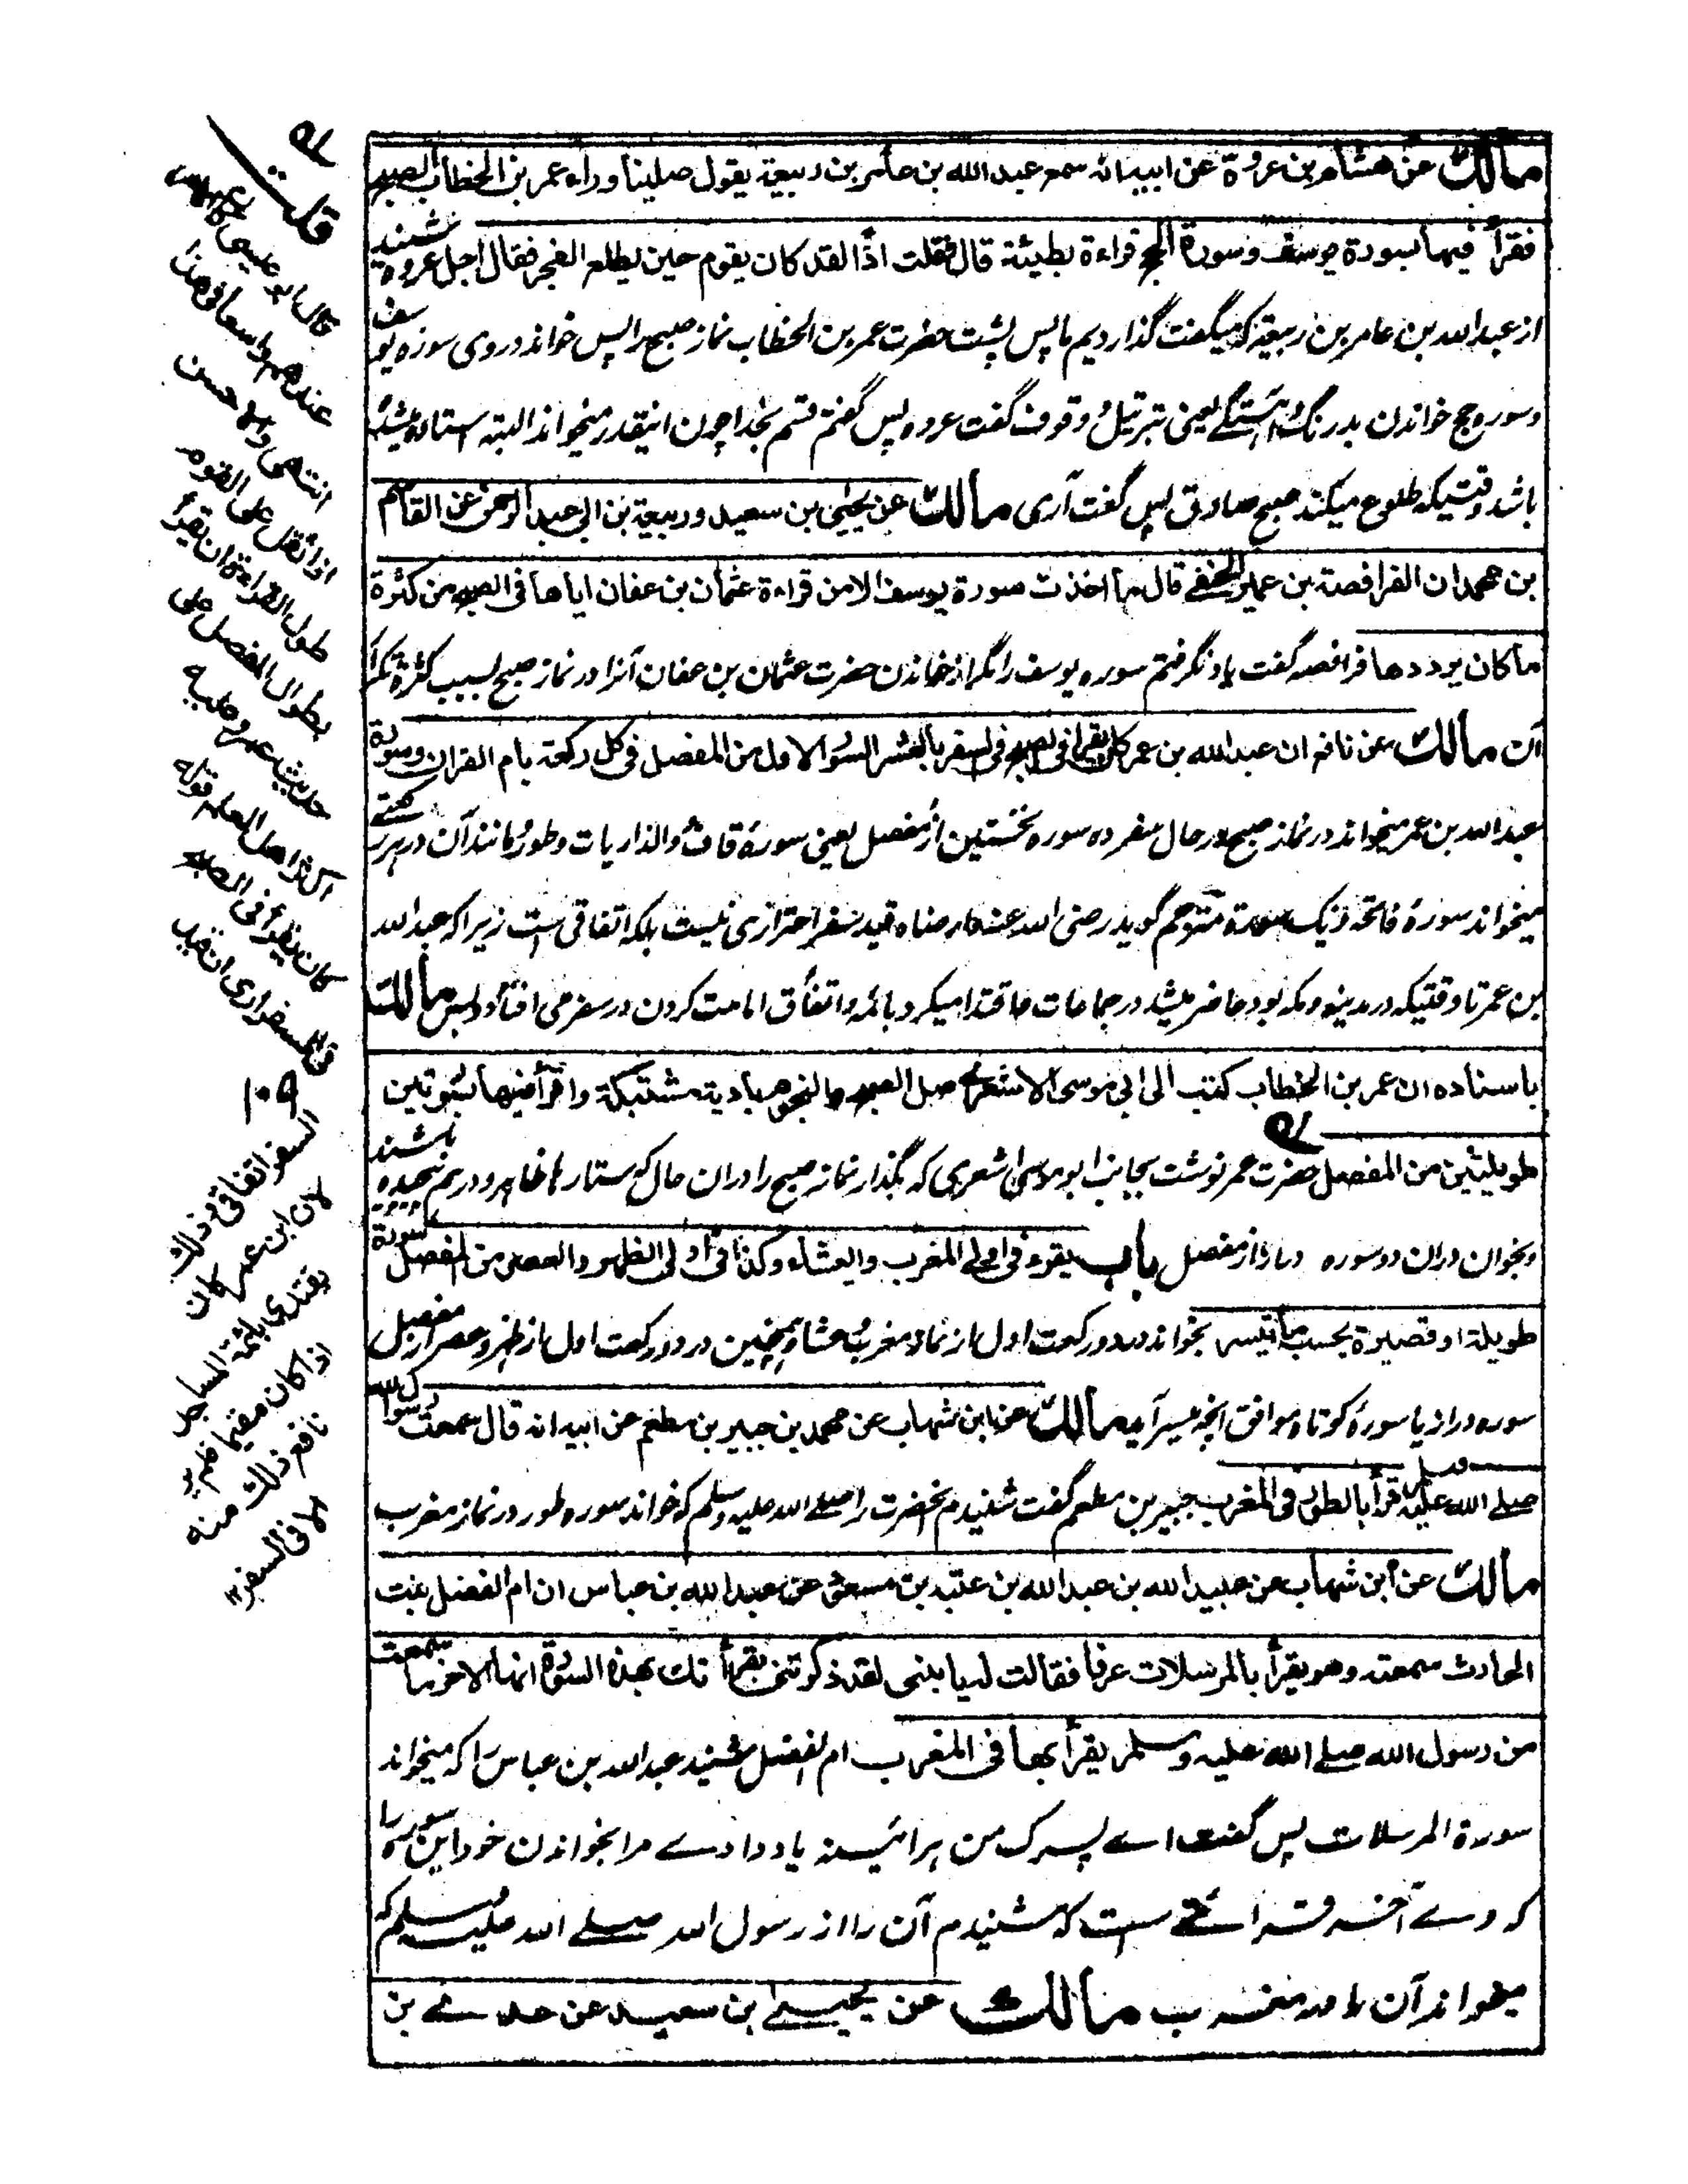 مالك عن هشام بن عروة عن ابيه انه سمع عبد الله بن عامر بن ربيعة يقول صلينا وراء عمر بن الخطاب الصبح
فقرأ فيها بسورة يوسف وسورة الحج قراءة بطيئة قال فقلت اذا لقد كان يقوم حين يطلع الفجر فقال اجل عروه شنيد
از عبد الله بن عامر بن ربيعة كه ميگفت گذارديم ما پس پشت حضرت عمر بن الخطاب نماز صبح را پس خواند در وى سوره يوسف
وسوره حج خواندن بدرنگ و آهستگے يعنى بترتيل و وقوف گفت عروه پس گفتم قسم بخدا چون اينقدر ميخواند البته استاده ميشده
باشد وقتيكه طلوع ميكند صبح صادق پس گفت آرى مالك عن يحيى بن سعيد وربيعة بن ابى عبد الرحمن عن القاسم
بن محمد ان الفرافصة بن عمير الحنفى قال ما اخذت سورة يوسف الا من قراءة عثمان بن عفان اياها فى الصبح من كثرة
ما كان يرددها فرافصه گفت ياد نگرفتم سوره يوسف را مگر از خواندن حضرت عثمان بن عفان آنرا در نماز صبح بسبب كثرة تكرار
آن مالك عن نافع ان عبد الله بن عمر كان يقرأ فى الصبح فى السفر بالعشر السور الاول من المفصل فى كل ركعة بام القران وسورة
عبد الله بن عمر ميخواند در نماز صبح در حال سفر ده سوره نخستين از مفصل يعنى سورۀ قاف والذاريات وطور و مانند آن در هر ركعتے
ميخواند سورۀ فاتحه ويك سورة مترجم گويد رضى الله عنه وارضاه قيد سفر احترازى نيست بلكه اتفاقى است زيرا كه عبد الله
بن عمر تا وقتيكه در مدينه ومكه بود حاضر ميشد در جماعات واقتدا ميكرد بائمه واتفاق امامت كردن در سفر مى افتاد وبس مالك
باسناده ان عمر بن الخطاب كتب الى ابى موسى الاشعرى صل الصبح والنجوم بادية مشتبكة واقرأ فيها بسورتين
طويلتين من المفصل حضرت عمر نوشت بجانب ابو موسى اشعرى كه بگذار نماز صبح را دران حال كه ستارها ظاهر ودرهم پيچيده باشند
وبخوان دران دو سوره دراز از مفصل باب يقرء فى اولى المغرب والعشاء وكذا فى اولى الظهر والعصر من المفصل سورة
طويلة او قصيرة بحسب ما تيسر بخواند در دو ركعت اول از نماز مغرب و عشا وهمچنين در دو ركعت اول از ظهر وعصر از مفصل
سوره دراز يا سورۀ كوتاه موافق آنچه ميسر آيد مالك عن ابن شهاب عن محمد بن جبير بن مطعم عن ابيه انه قال سمعت رسول الله
صلى الله عليه وسلم قرأ بالطور فى المغرب جبير بن مطعم گفت شنيدم آنحضرت را صلے الله عليه وسلم كه خواند سوره طور در نماز مغرب
مالك عن ابن شهاب عن عبيد الله بن عبد الله بن عتبة بن مسعود عن عبد الله بن عباس ان ام الفضل بنت
الحارث سمعته وهو يقرأ بالمرسلات عرفا فقالت له يا بنى لقد ذكرتنى بقراءتك بهذه السورة انها لاخر ما سمعت
من رسول الله صلے الله عليه وسلم يقرأ بها فى المغرب ام الفضل شنيد عبد الله بن عباس را كه ميخواند
سورة المرسلات پس گفت اے پسرك من هر آئينه ياد دادے مرا بخواندن خود اين سوره را
كه وے آخر قرائتے ست كه شنيدم آن را از رسول الله صلے الله عليه وسلم كه
ميخواند آن را در مغرب مالك عن يحيى بن سعيد عن عدے بن
قلت
قال ابو عيسى
عندهم واسعا فى هذا
انتهى وهو حسن
اذا ثقل على القوم
طول القراءة ان يقرأ
بطوال المفصل على
حديث عمر وعليه
اكثر اهل العلم قوله
كان يقرأ فى الصبح
فى السفر ارى ان قيد
السفر اتفاقى وذلك
لان ابن عمر كان
يقتدى بائمة المساجد
اذا كان مقيما فلم ير
نافع ذلك منه
الا فى السفر ١٢